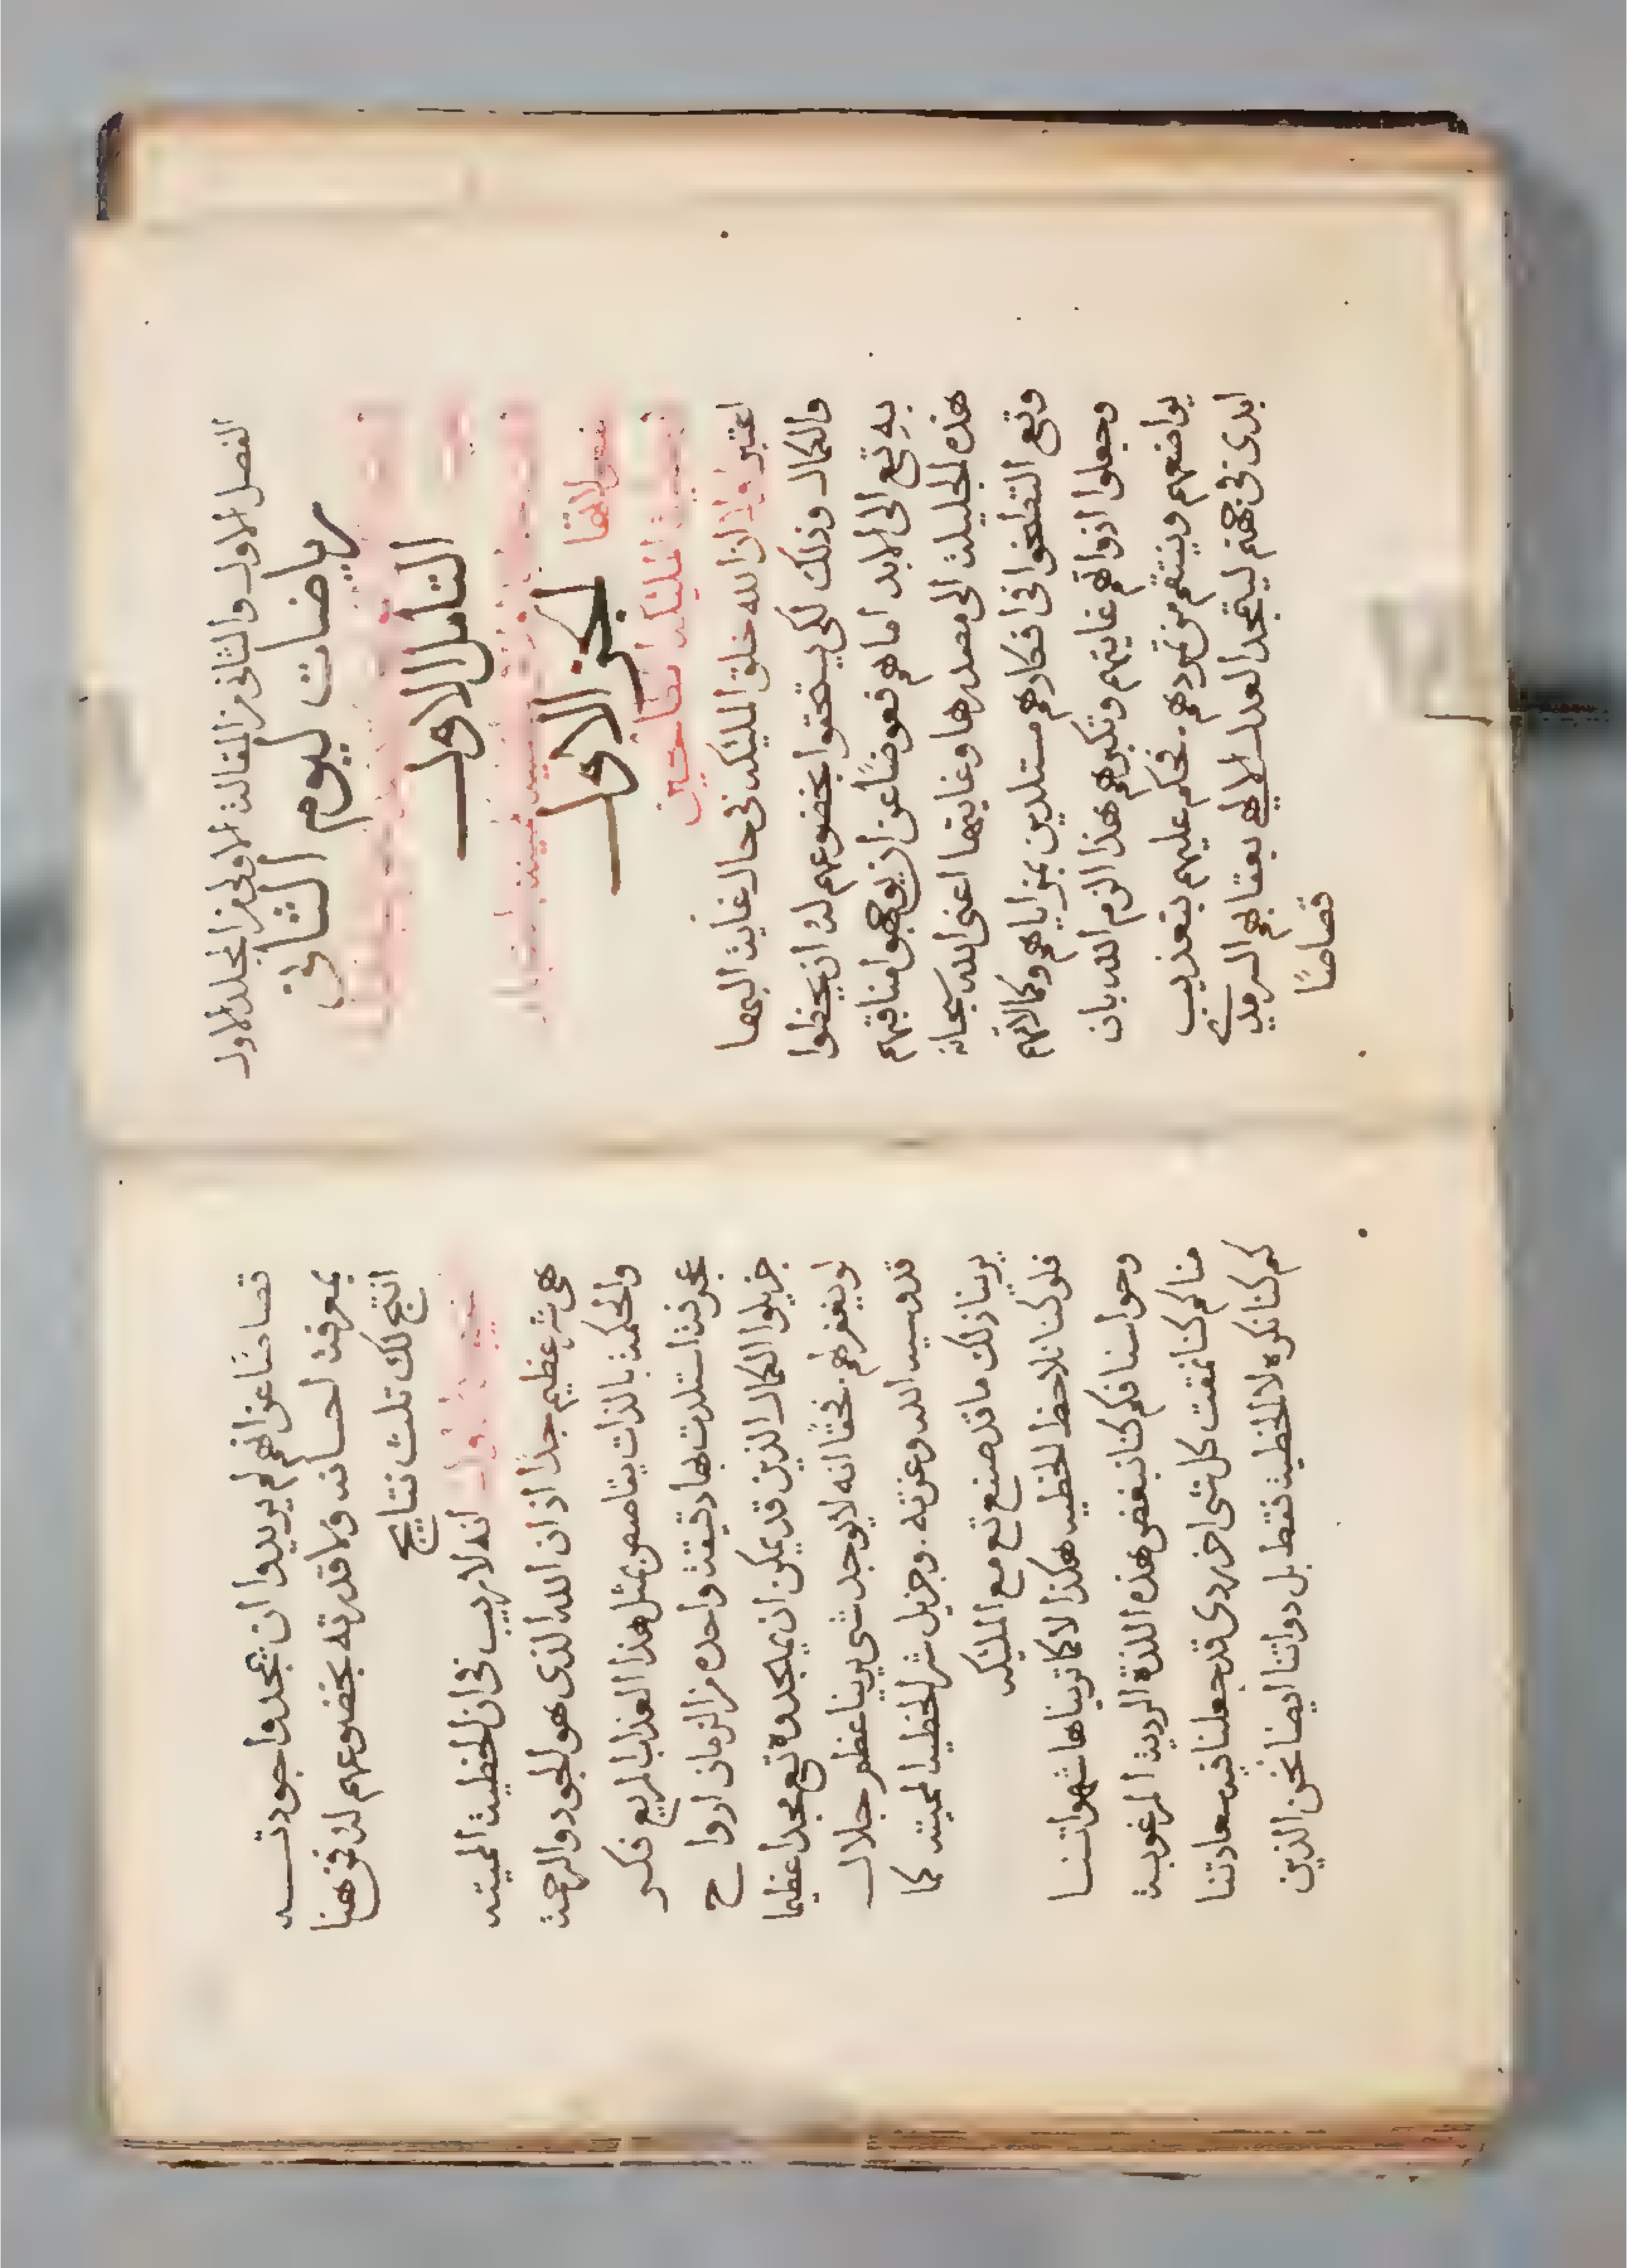 الفصل الاول والثاني من المقالة الاولى من المجلد الاول
رياضات ليوم الثاني
التامل الاول
الجز الاول
اعتبر اولا ان الله خلق المليكه في حال غاية البها
والكمال وذلك لكي يستحقوا بخضوعهم له ان يحظوا
به تع الى الابد اما هم فعوضًا عن ان يوجهوا مناقبهم
هذه الجليلة الى مصدرها وغايتها اعني الله سبحانه
وتع التطخوا في افكارهم مستلدين بمزاياهم وكمالاتهم
وجعلوا ذواتهم غايتهم وتكبرهم هذا الزم الله بان
يواضعهم وينتقم من تمردهم. فحكم عليهم بتعذيب
ابدى في جهنم ليتمجد العدل الالهي بعقابهم السرمدي
قصاصًا
قصاصًا عن انهم لم يريدوا ان يمجدوا جودتـــه
بمعرفة احسانه ولا قدرته بخضوعهم له فمن هنا
انتج لك ثلث نتايج
انه لا ريب في ان الخطية المميته
هي شر عظيم جدًا اذ ان الله الذي هو الجود والرحمة
والحكمة بالذات يقاصص بمثل هذا العذاب المريع فكر
عجرفة استلدت بها دقيقة واحده من الزمان ارواح
جزيلوا الكمال الذين قد يمكن ان يمجدوه تع مجدا عظيما
لو يغفر لهم. فحقًا انه لا يوجد شي يرينا عظم جلال
قدوسية الله وعزته. وجزيل شر الخطيه المميته كما
يرينا ذلك ما قد صنع تع مع المليكه
فلو كنا نلاحظ الخطيه هكذا لا كما ترينا ها شهواتنـــا
وحواسنا فكم كنا نبغض هذه اللذة الردية المرغوبة
منا كم كنا نمقت كل شى اخر دى قد جعلنا فيه سعادتنا
كم كنا نكره لا الخطية فقط بل ذواتنا ايضا نحن الذين